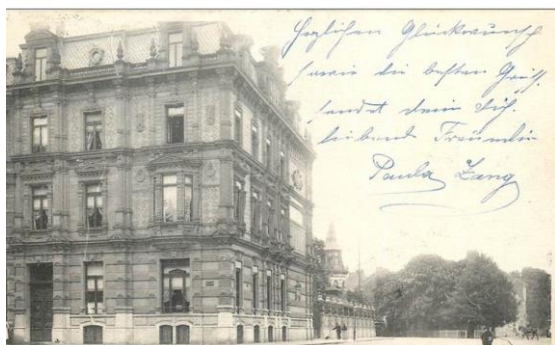 Herzlichen Glückwunsch
sowie die besten Grüß.
sendet dein dich
liebende Freundin
Paula Zang